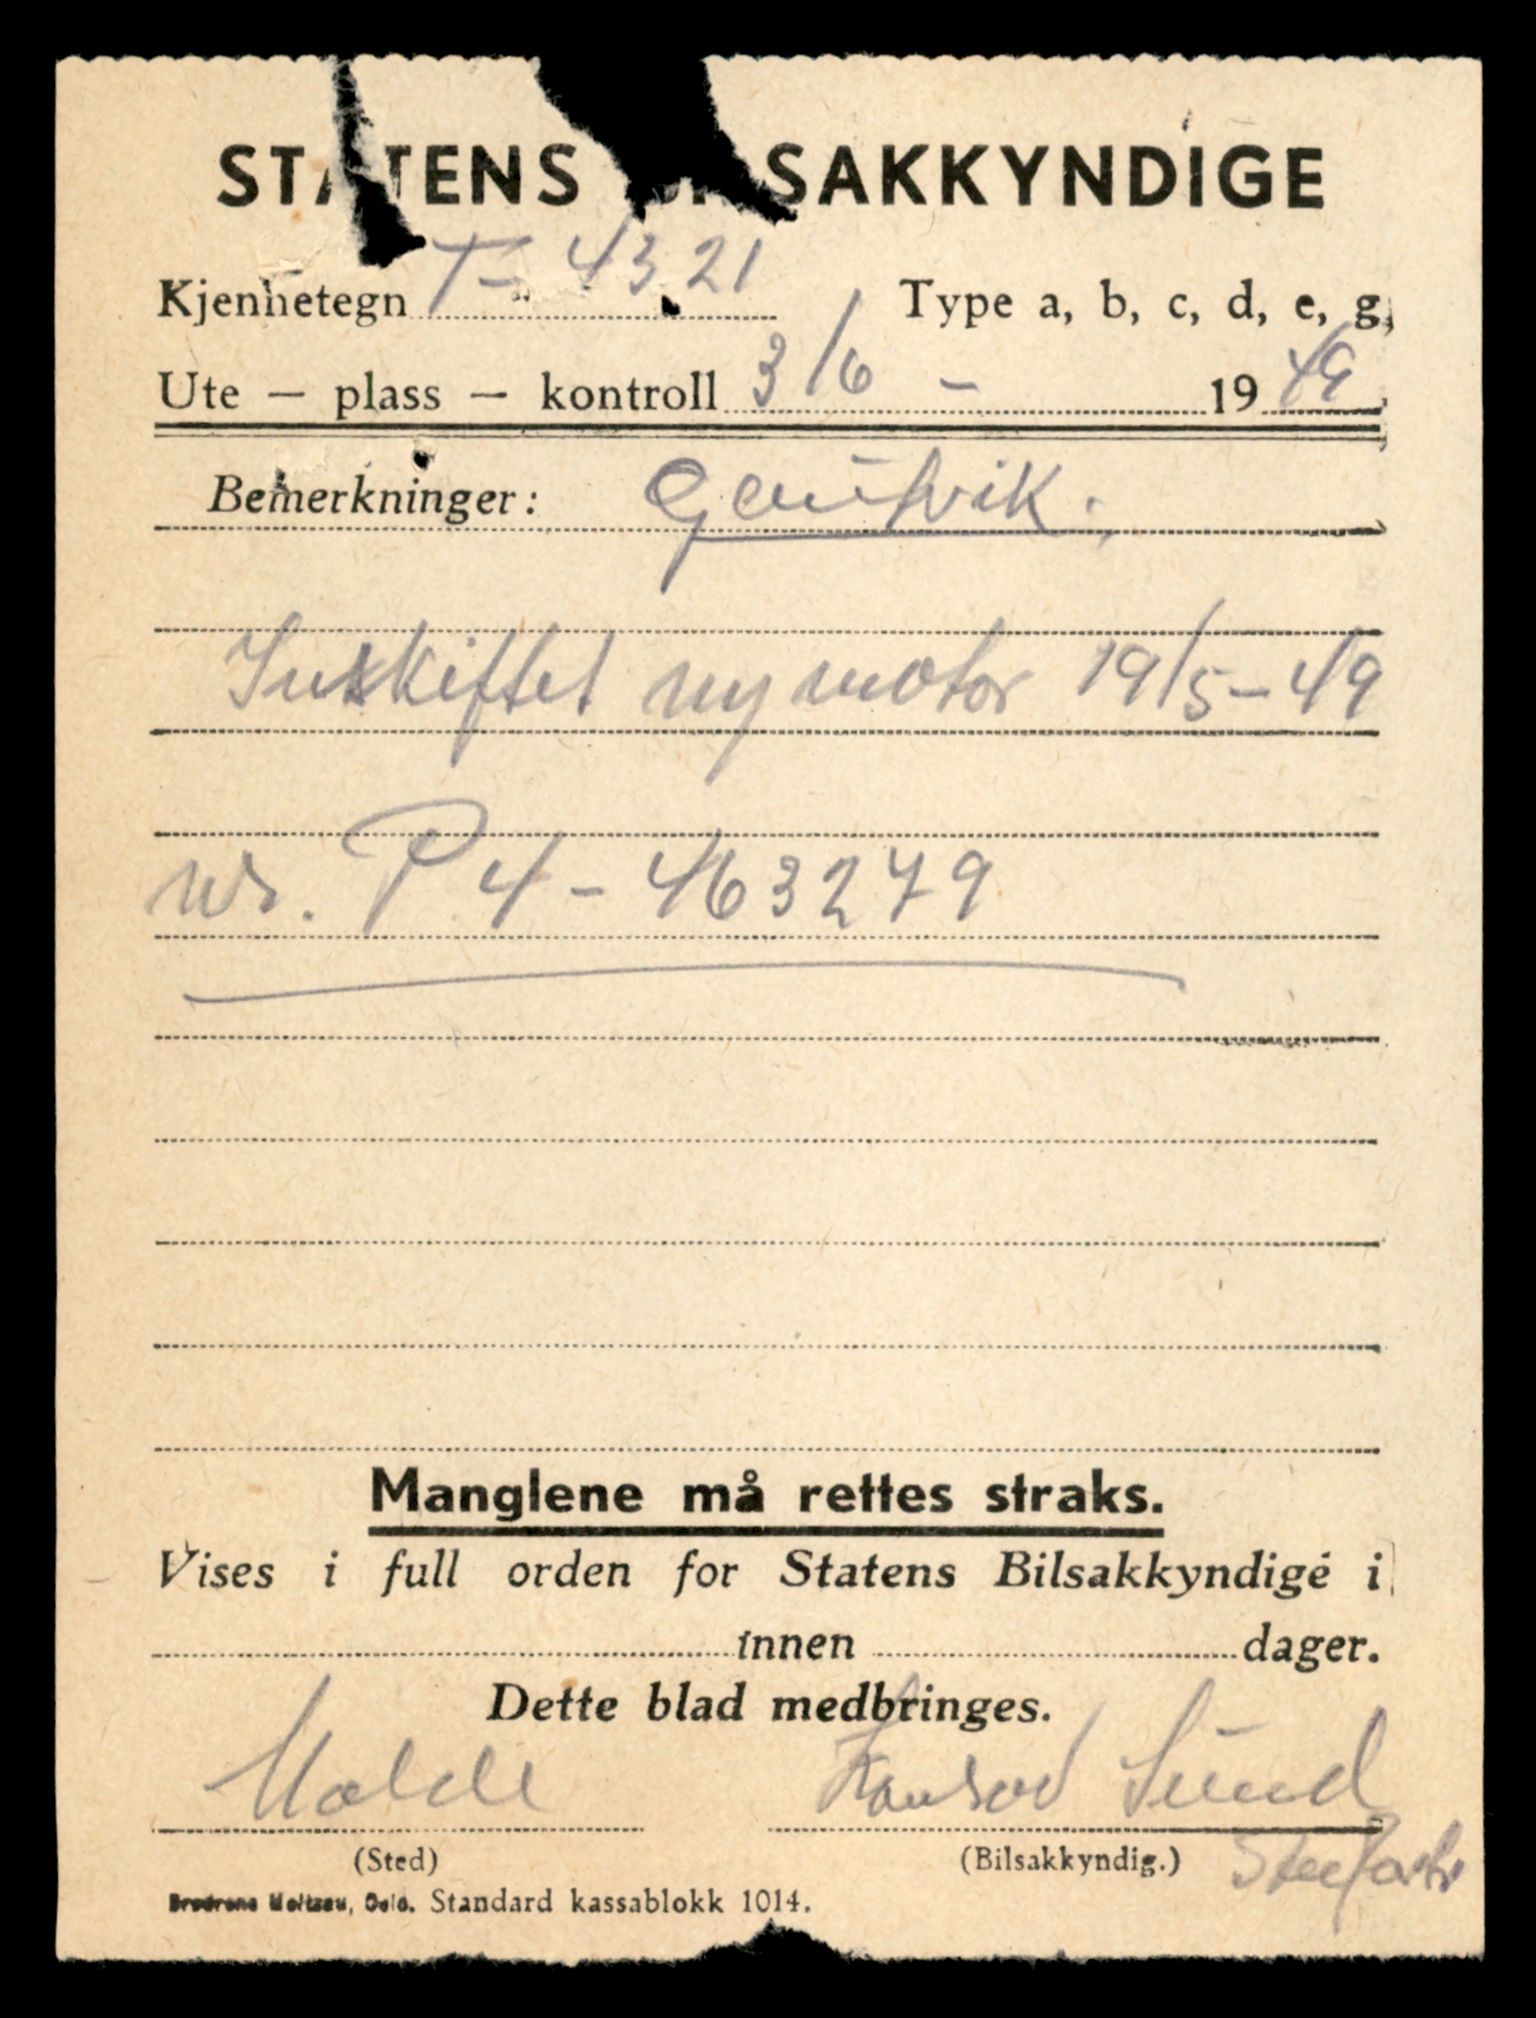 STATENS BILSAKKYNDIGE
Kjennetegn T- 4321 Type a, b, c, d, e, g,
Ute — plass — kontroll 3/6 - 1949
Bemerkninger:
Inskiftet ny motor 19/5-49
nr. P4-463279
Manglene må rettes straks.
Vises i full orden for Statens Bilsakkyndige i
innen dager.
Dette blad medbringes.
Molde Konrad Sund
(Sted) (Bilsakkyndig.)
Brødrene Meltzau, Oslo. Standard kassablokk 1014.